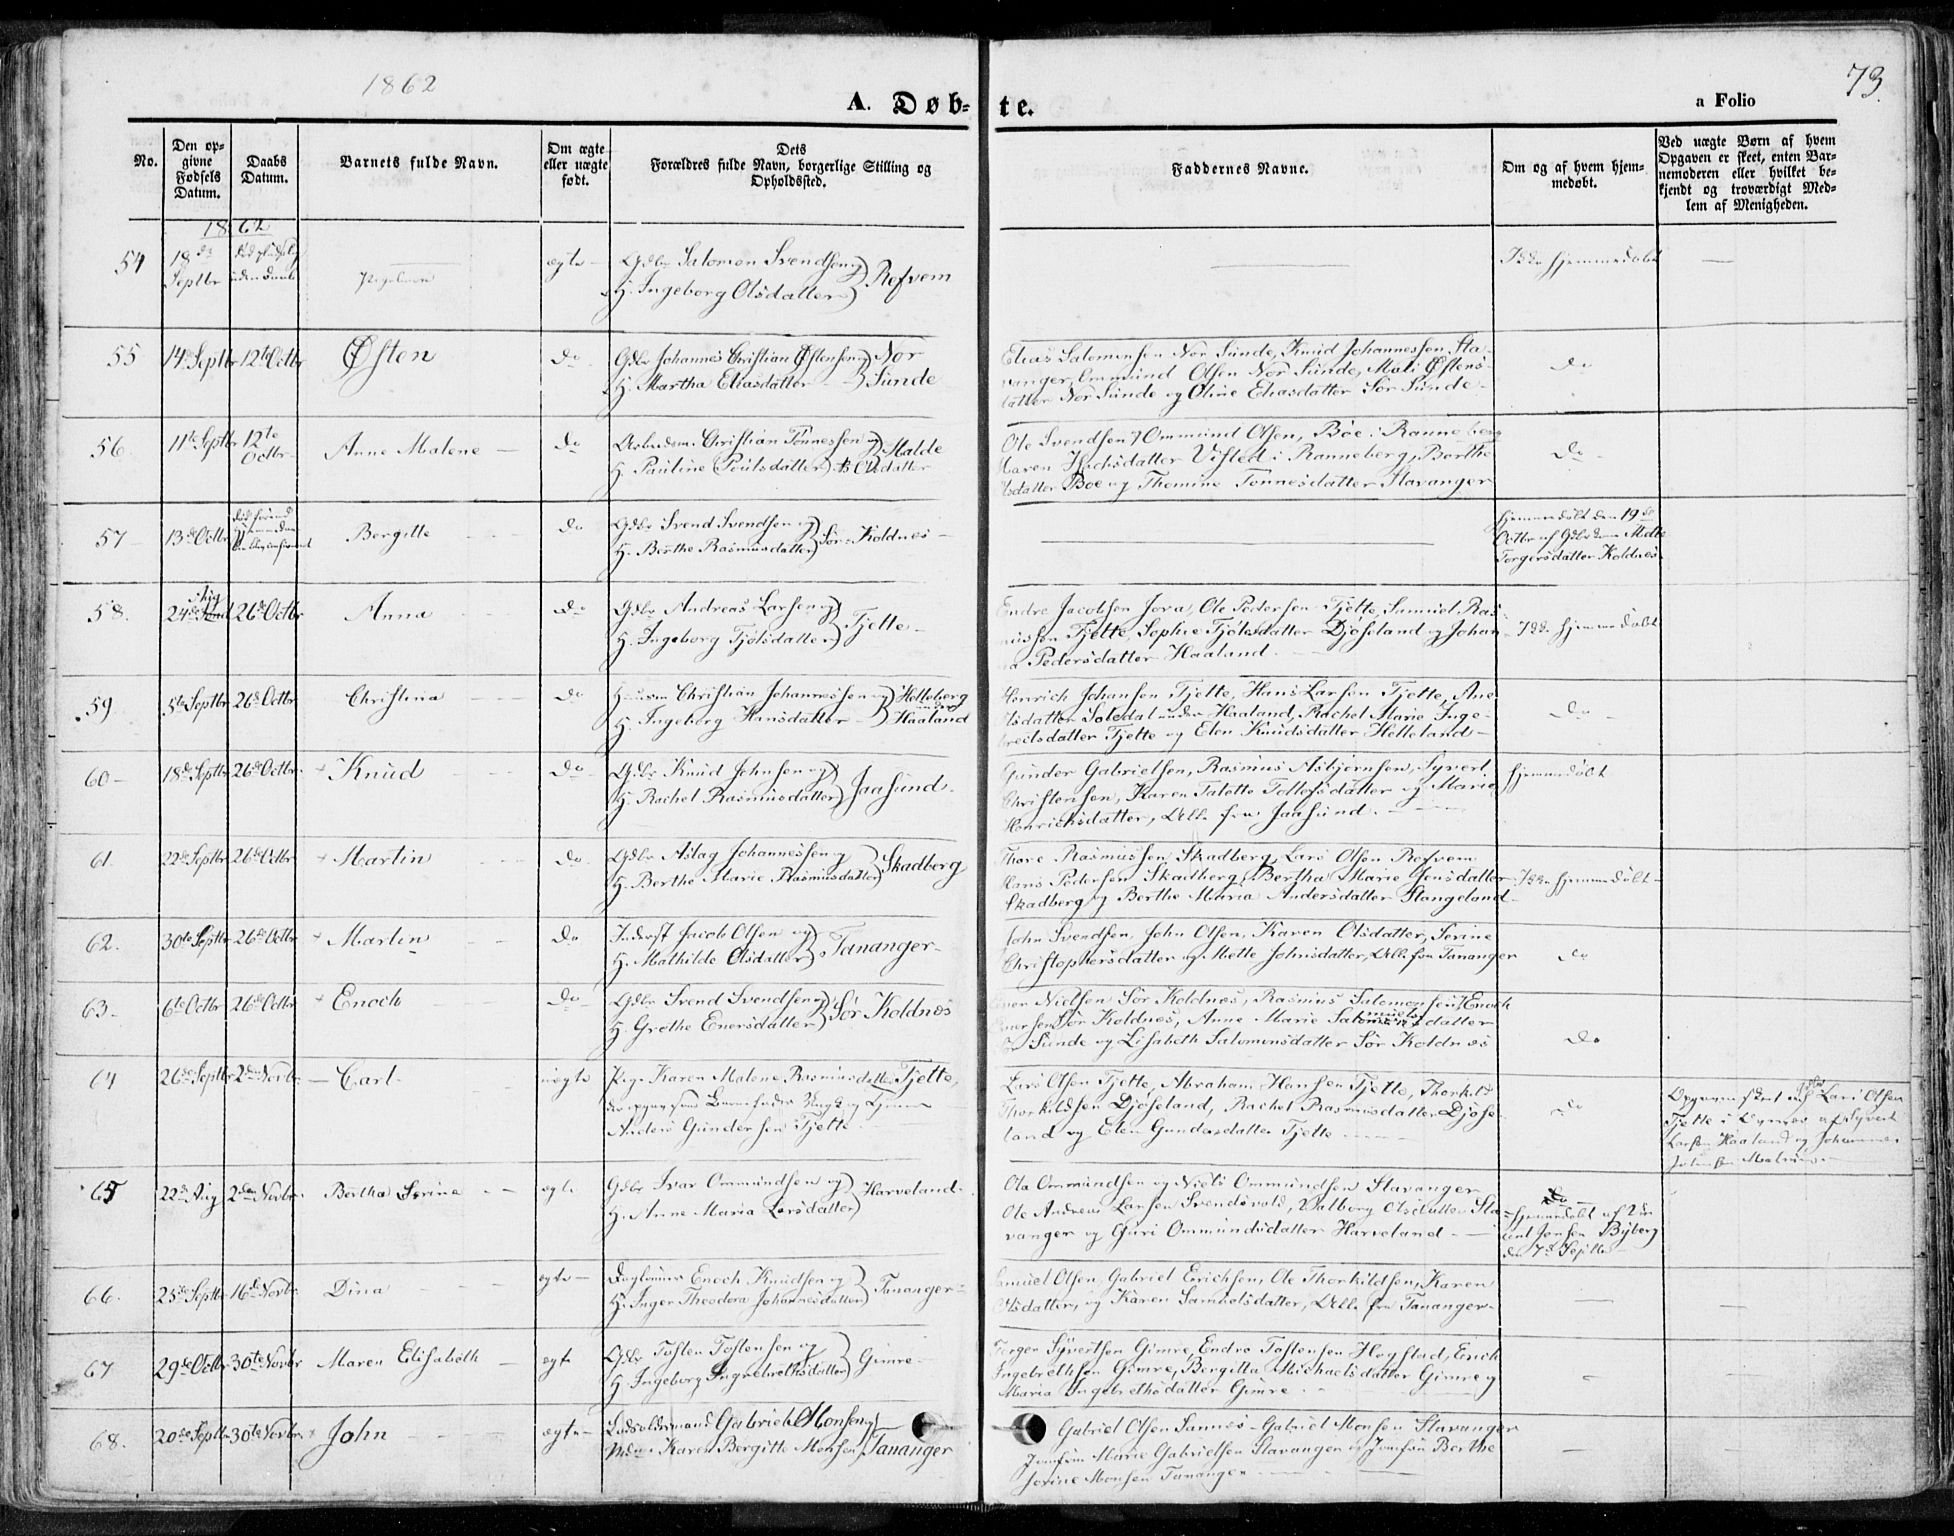 1862
A. Døb-
te.
a Folio
73.
No.
Den op-
givne
Fødsels
Datum.
Daabs
Datum.
Barnets fulde Navn.
Om ægte
eller uægte
født.
Dets
Forældres fulde Navn, borgerlige Stilling og
Opholdssted.
Faddernes Navne.
Om og af hvem hjem-
medøbt.
Ved uægte Børn af hvem
Opgaven er skeet, enten Bar-
nemoderen eller hvilket be-
kjendt og troværdigt Med-
lem af Menigheden.
1862
54
18de
Septbr
uden Daab
ægte
Gdbr Salomon Svendsen og
H. Ingeborg Olsdatter
Refvem
Ikke hjemmedøbt
55
14de Septbr
12te Octbr
Østen
do
Gdbr Johannes Christian Østensen og
H. Martha Eliasdatter
Nor
Sunde
Elias Salomonsen Nor Sunde, Knud Johannessen Sta-
vanger, Ommund Olsen Nor Sunde, Mali Østens-
datter Nor Sunde og Oline Eliasdatter Sør Sunde
do
56
11te Septbr
12te
Octbr
Anne Malene
do
Arbeidsm. Christian Tønnessen og
H. Pauline Poulsdatter Olsdatter
Malde
Ole Svendsen, Ommund Olsen, Bøe i Ranneberg
Maren Olsdatter Visted i Ranneberg, Berthe
Olsdatter Boe og Thomine Tønnesdatter Stavanger
do
57
13de Octbr
Bergitte
do
Gdbr Svend Svendsen og
H. Berthe Rasmusdatter
Sør Koldnes
hjemmedøbt den 19de
Octbr af Mette
Torgersdatter Koldnes
58.
Aug
24de
26de Octbr
Anna
do
Gdbr Andreas Larsen og
H. Ingeborg Tjølsdatter
Tjelte
Endre Jacobsen Jora, Ole Pedersen Tjelte, Samuel Ras-
mussen Tjelte, Sophie Tjølsdatter Djøseland og Johan-
na Pedersdatter Haaland.
Ikke hjemmedøbt
59
5te Septbr
26de Octbr
Christina
do
Christian Johannessen og
H. Ingeborg Hansdatter
Helleberg
under
Haaland
Henrich Johansen Tjelte, Hans Larsen Tjelte, Ane
Olsdatter Soledal under Haaland, Rachel Marie Inge-
bretsdatter Tjelte og Elen Knudsdatter Helleland
do
60
18de Septbr
26de Octbr
Knud
do
Gdbr Knud Johnsen og
H. Rachel Rasmusdatter
Jaasund
Gunder Gabrielsen, Rasmus Asbjørnsen, Syvert
Christensen, Karen Talette Tollefsdatter og Marie
Henrichsdatter, Alle fra Jaasund.
hjemmedøbt
61.
22de Septbr
26de Octbr
Martin
do
Gdbr Aslag Johannessen og
H. Berthe Marie Rasmusdatter
Skadberg
Thore Rasmussen Skadberg, Lars Olsen Refvem
Hans Pedersen Skadberg, Bertha Marie Jensdatter
Skadberg og Berthe Maria Andersdatter Stangeland
Ikke hjemmedøbt
62.
30te Septbr
26de Octbr
Martin
do
Inderst Jacob Olsen og
H. Mathilde Olsdatter
Tananger
John Svendsen, John Olsen, Karen Olsdatter, Serine
Christophersdatter og Mette Johnsdatter, Alle fra Tananger
do
63.
6te Octbr
26de Octbr
Enoch
do
Gdbr Svend Svendsen og
H. Grethe Enersdatter
Sør Koldnes
Ener Nielsen Sør Koldnes, Rasmus Salomonsen, Enoch
Enersen Sør Koldnes, Anne Marie Samuelsdatter
Sunde og Lisabeth Salomonsdatter Sør Koldnes
do
64
26de Septbr
2den Novbr
Carl
uægte
Pige Karen Malene Rasmusdatter Tjelte,
der opgav som Barnefader
Anders Gundersen Tjelte
Lars Olsen Tjelte, Abraham Hansen Tjelte, Thorkild
Thorkildsen Djøseland, Rachel Rasmusdatter Djøse-
land og Elen Gundersdatter Tjelte
do
Opgaven skeet af Gdbr Lars Olsen
Tjelte i Overvær af Syvert
Larsen Haaland og Johannes
65
22de Aug
2den Novbr.
Bertha Serine
ægte
Gdbr Ivar Ommundsen og
H. Anne Maria Larsdatter
Harveland
Ola Ommundsen og Niels Ommundsen Stavanger
Ole Andreas Larsen Svendsvold, Valborg Olsdatter Sta-
vanger og Guri Ommundsdatter Harveland
hjemmedøbt af
Jensen Byberg
den 7de Septbr
66.
25de Septbr
16de Novbr.
Dina
ægte
Daglønner Enoch Knudsen og
H. Inger Theodora Johannesdatter
Tananger
Samuel Olsen, Gabriel Erichsen, Ole Thorkildsen, Karen
Olsdatter, og Karen Samuelsdatter, Alle fra Tananger
67
29de Octbr
30te Novbr
Maren Elisabeth
ægte
Gdbr Tosten Tostensen og
H. Ingeborg Ingebrethsdatter
Gimre
Torger Syvertsen Gimre, Endre Tostensen Hogstad, Erich
Ingebrethsen Gimre, Bergitta Michaelsdatter Gimre og
Maria Ingebrethsdatter Gimre
68.
20de Septbr
30te Novbr.
John
ægte
Gabriel Monsen og
Md. Karen Bergitte Monsen
Tananger
Gabriel Olsen Sannes, Gabriel Monsen Stavanger
Jomfru Marie Gabrielsen Stavanger og Jomfru Berthe
Serine Monsen Tananger